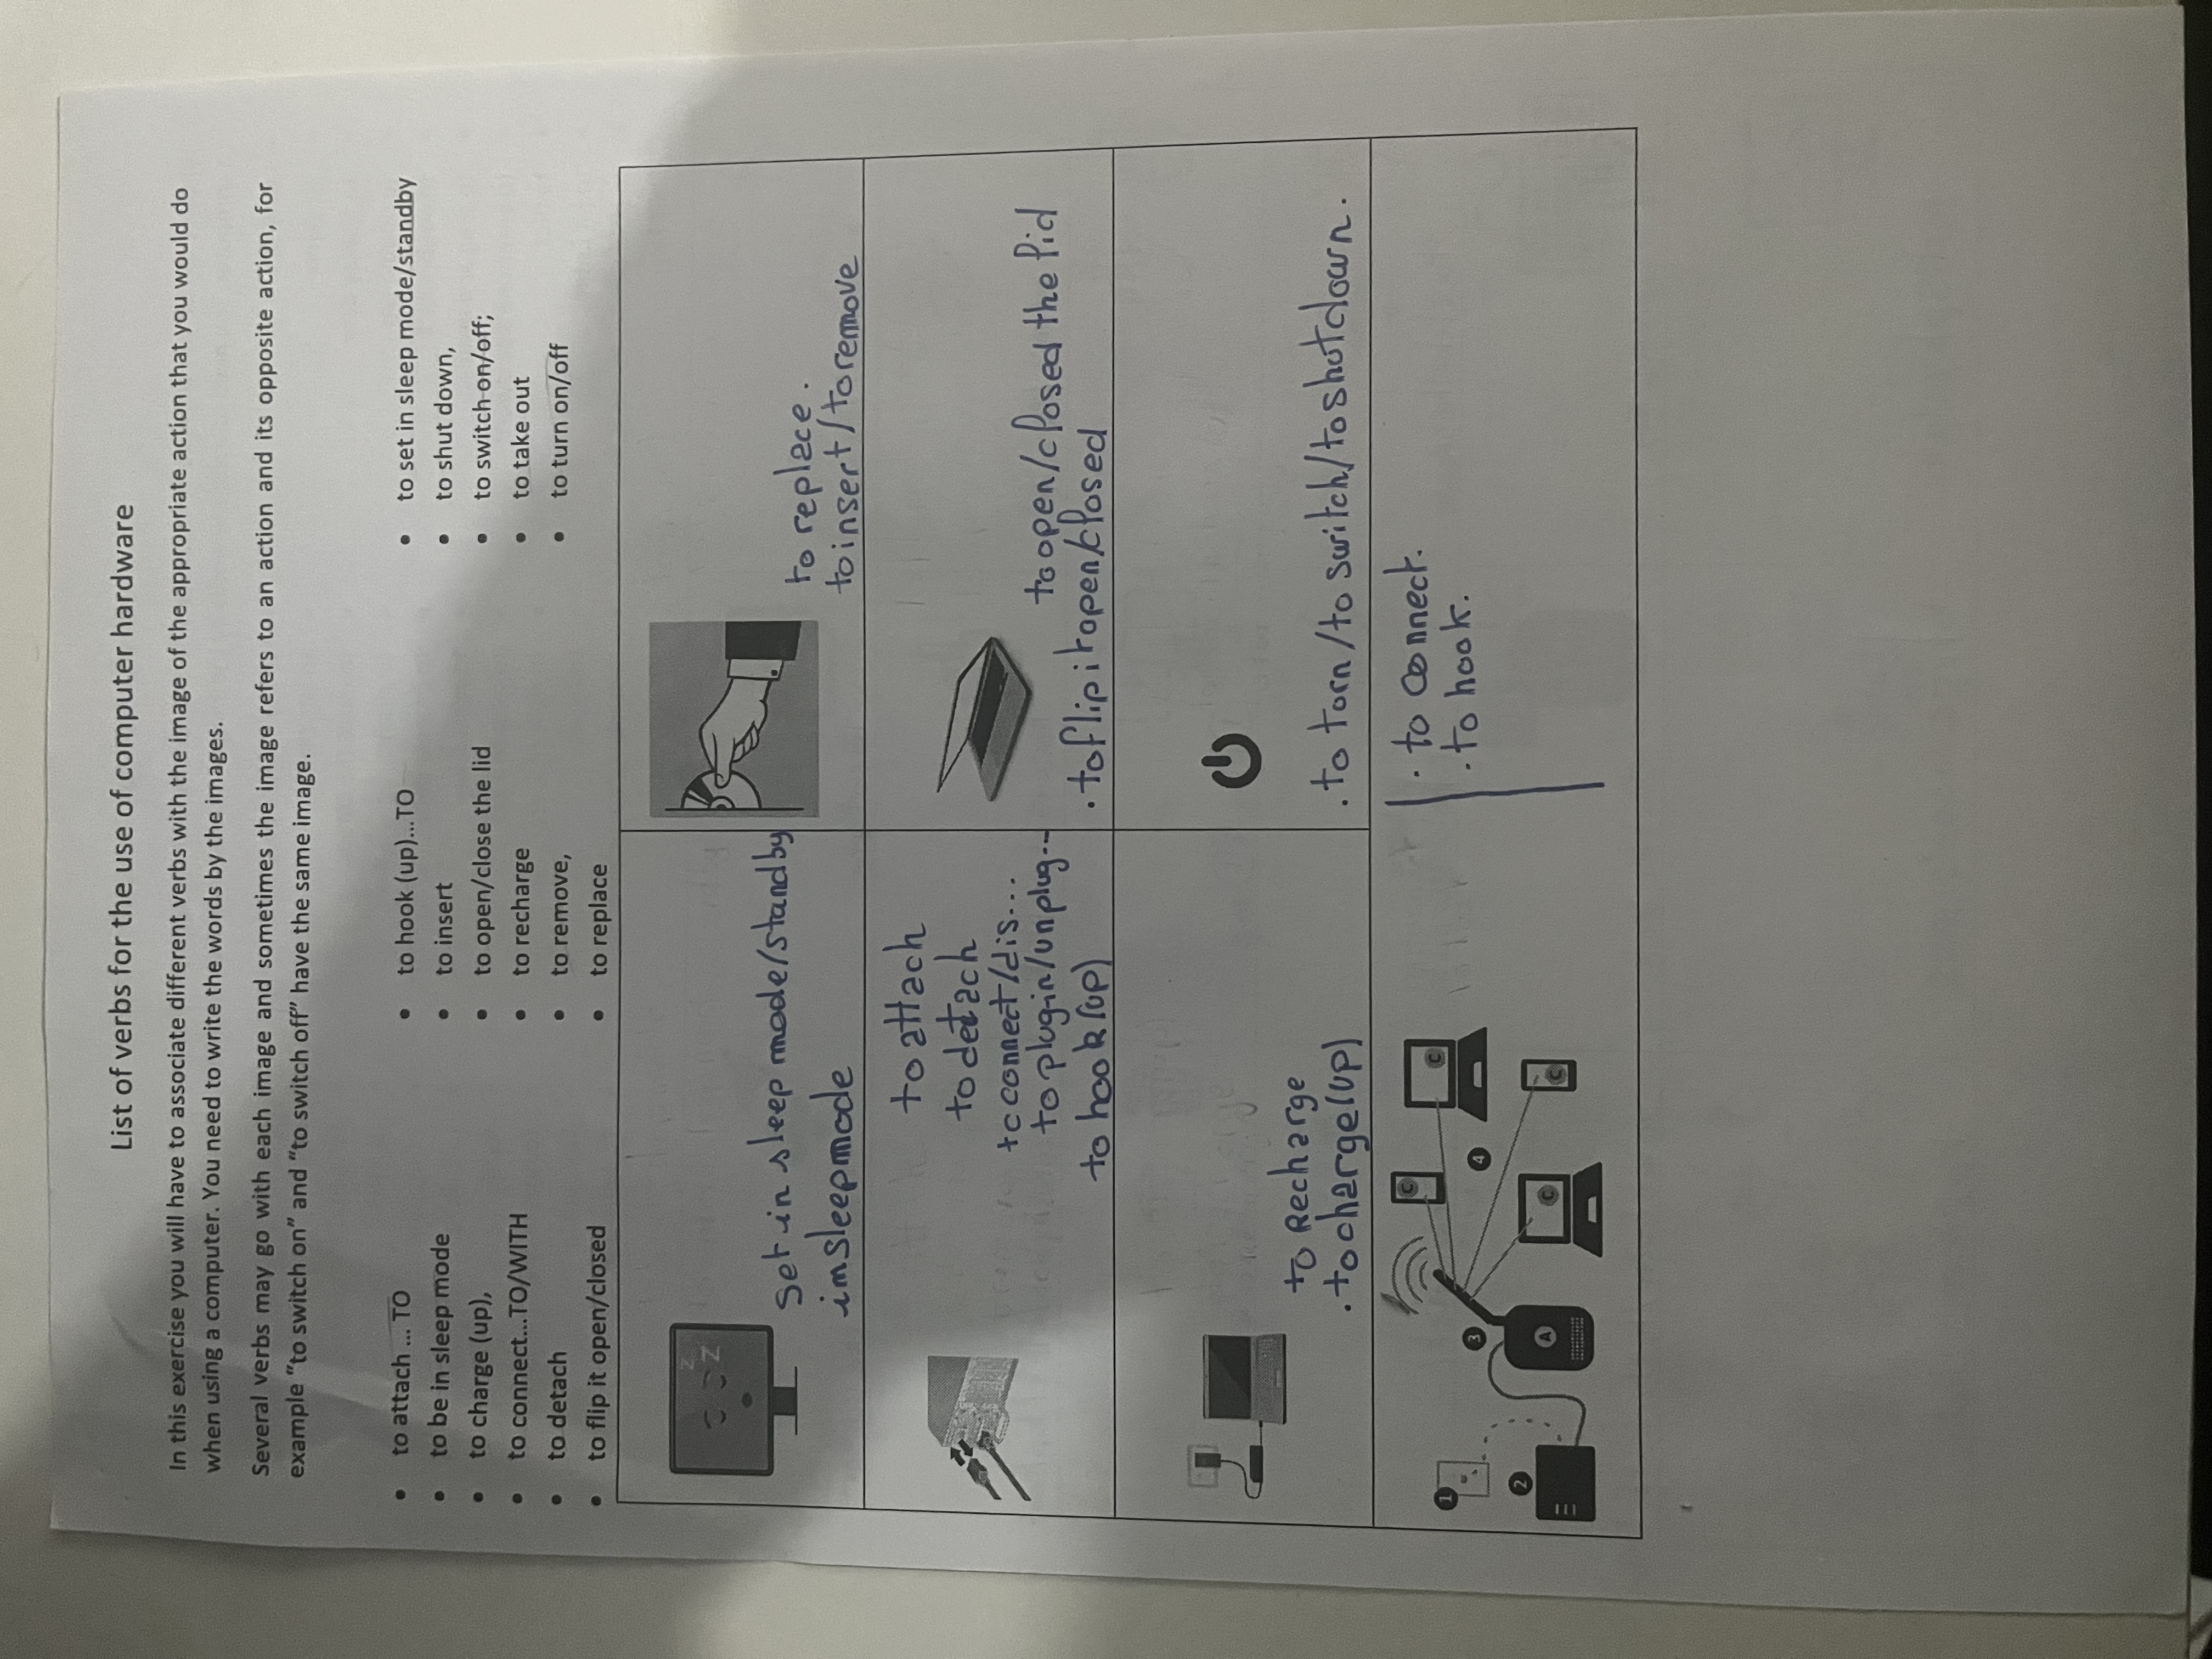 List of verbs for the use of computer hardware
In this exercise you will have to associate different verbs with the image of the appropriate action that you would do
when using a computer. You need to write the words by the images.
Several verbs may go with each image and sometimes the image refers to an action and its opposite action, for
example “to switch on” and “to switch off” have the same image.
• to attach ... TO
• to be in sleep mode
• to charge (up),
• to connect...TO/WITH
• to detach
• to flip it open/closed
• to hook (up)...TO
• to insert
• to open/close the lid
• to recharge
• to remove,
• to replace
• to set in sleep mode/standby
• to shut down,
• to switch on/off;
• to take out
• to turn on/off
z
Z
set in sleep mode/standby
im sleep mode
to replace.
to insert/to remove
to attach
to detach
to connect/dis...
to plugin/unplug...
to hook (up)
to open/closed the lid
. to flip it open/closed
to Recharge
. to charge (up)
. to torn/to switch/to shutdown.
1
2
3
4
A
C
C
C
C
. to connect.
. to hook.